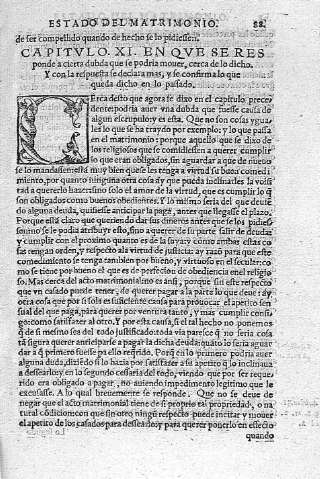 ESTADO DEL MATRIMONIO. 88.
de ser compelido quando de hecho se lo pidiessen.
CAPITULO. XI. EN QVE SE RES
ponde a cierta dubda que se podria mouer, cerca de lo dicho.
Y con la respuesta se declara mas, y se confirma lo que
queda dicho en lo passado.
desto que agora se dixo en el capitulo prece
dente podria auer vna dubda que fuesse causa de
algun escrupulo y es esta. Que no son cosas ygua
les lo que se ha traydo por exemplo; y lo que passa
en el matrimonio: porque aquello que se dixo de
los religiosos que se comidiessen a querer cumplir
lo que eran obligados, sin aguardar a que de nueuo
se lo mandassen está muy bien que se les tenga a virtud su buen comedi
miento, por quanto ninguna otra cosa ay que pueda inclinarles la volũ
tad a quererlo hazer sino solo el amor de la virtud, que es cumplir lo q̃
son obligados como buenos obedientes. Y lo mismo seria del que deuiẽ
do alguna deuda, quisiesse anticipar la paga, antes que llegasse el plazo.
Porque está claro que queriendo dar sus dineros antes que se los pidies
sen no se le podia atribuyr esto, sino a querer de su parte salir de deudas
y cumplir con el proximo quanto es de la suya: y como ambas estas co
sas tengan orden, y respecto a la virtud de justicia: ay razõ para que este
comedimiento se tenga tambien por bueno, y virtuoso en el seculár: co
mo se tiene por bueno el que es de perfeciõ de obediencia en el religio
so. Mas cerca del acto matrimonial es aun
que vn casado puede tener, de querer pagar a la parte lo que deue: ay
otra cosa que por si sola es suficiente causa para prouocar el apetito sen
sual del que paga, para querer por ventura tanto, y mas cumplir consi
go: como satisfazer al otro. Y por esta causa, si el tal hecho no ponemos
q̃ de si mesmo sea del todo justificado: toda via paresce q̃ no seria cosa
tã sigura querer anticiparse a pagar la dicha deuda: quãto lo seria aguar
dar a q̃ primero fuesse pa ello req̃rido. Porq̃ en lo primero podria auer
alguna duda, diziẽdo si lo hazia por satisfazer a su apetito q̃ lo inclinaua
a dessearlo: y en lo segundo cessaria del todo, viendo que por ser reque
rido era obligado a pagar, no auiendo impedimento legitimo que le
escusasse. A lo qual breuemente se responde. Que no se deue de
negar que el acto matrimonial tiene de si proprio essa propriedad, o na
tural cõdicion: con que sin otro ningũ respecto puede incitar y mouer
el apetito de los casados para dessearlo: y para querer ponerlo en effecto
quando